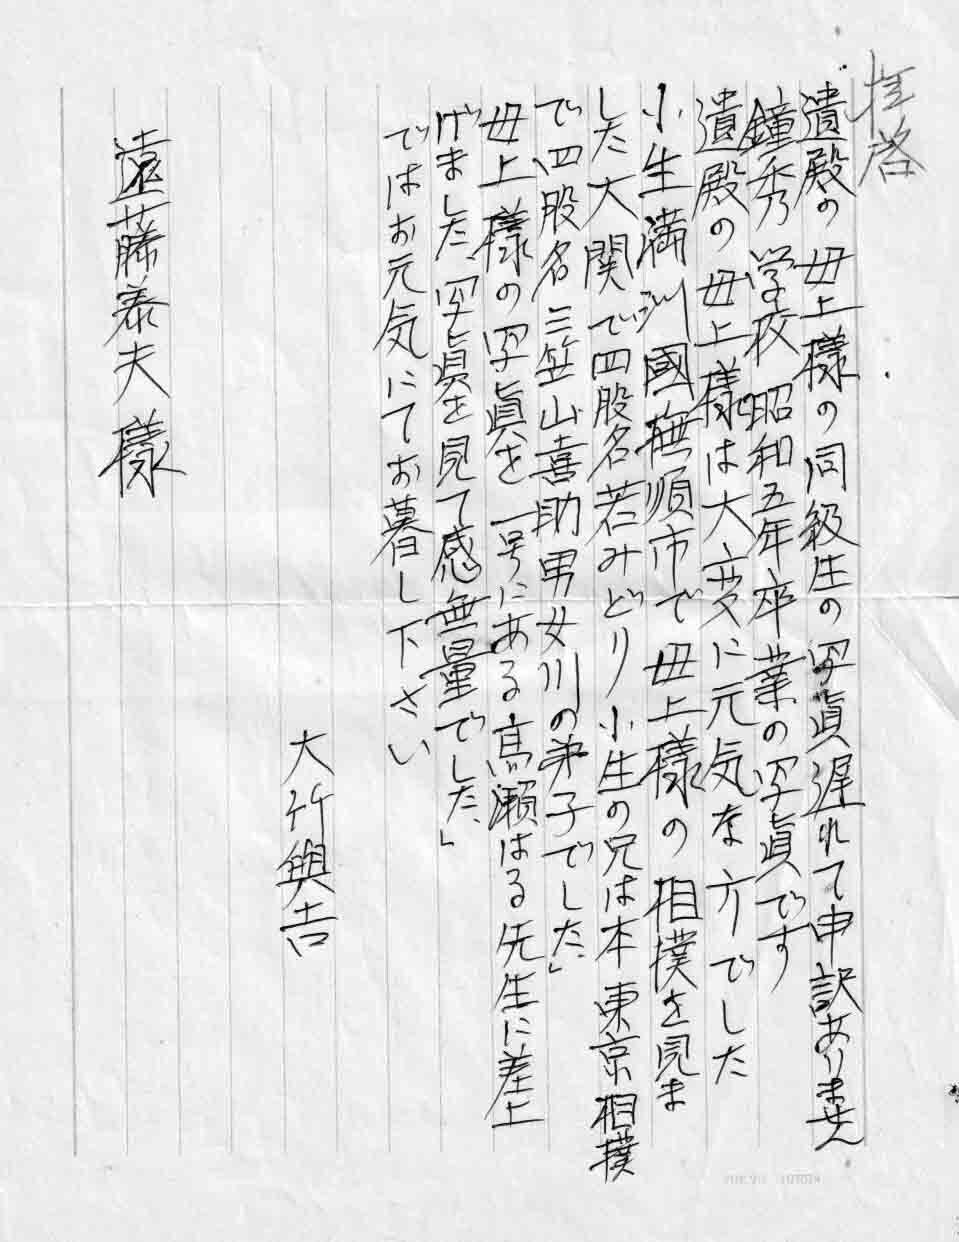 拝啓
遺殿の母上様の同級生の写眞遅れて申訳ありません
鐘秀学校昭和五年卒業の写眞です
遺殿の母上様は大変に元気な方でした
小生満洲國撫順市で母上様の相撲を見ま
した大関で四股名若みどり小生の兄は本東京相撲
で四股名三笠山喜助男女川の弟子でした」
母上様の写眞を一号にある高瀬はる先生に差上
げました、写眞を見て感無量でした、」
ではお元気にてお暮し下さい
大竹與吉
遠藤泰夫様